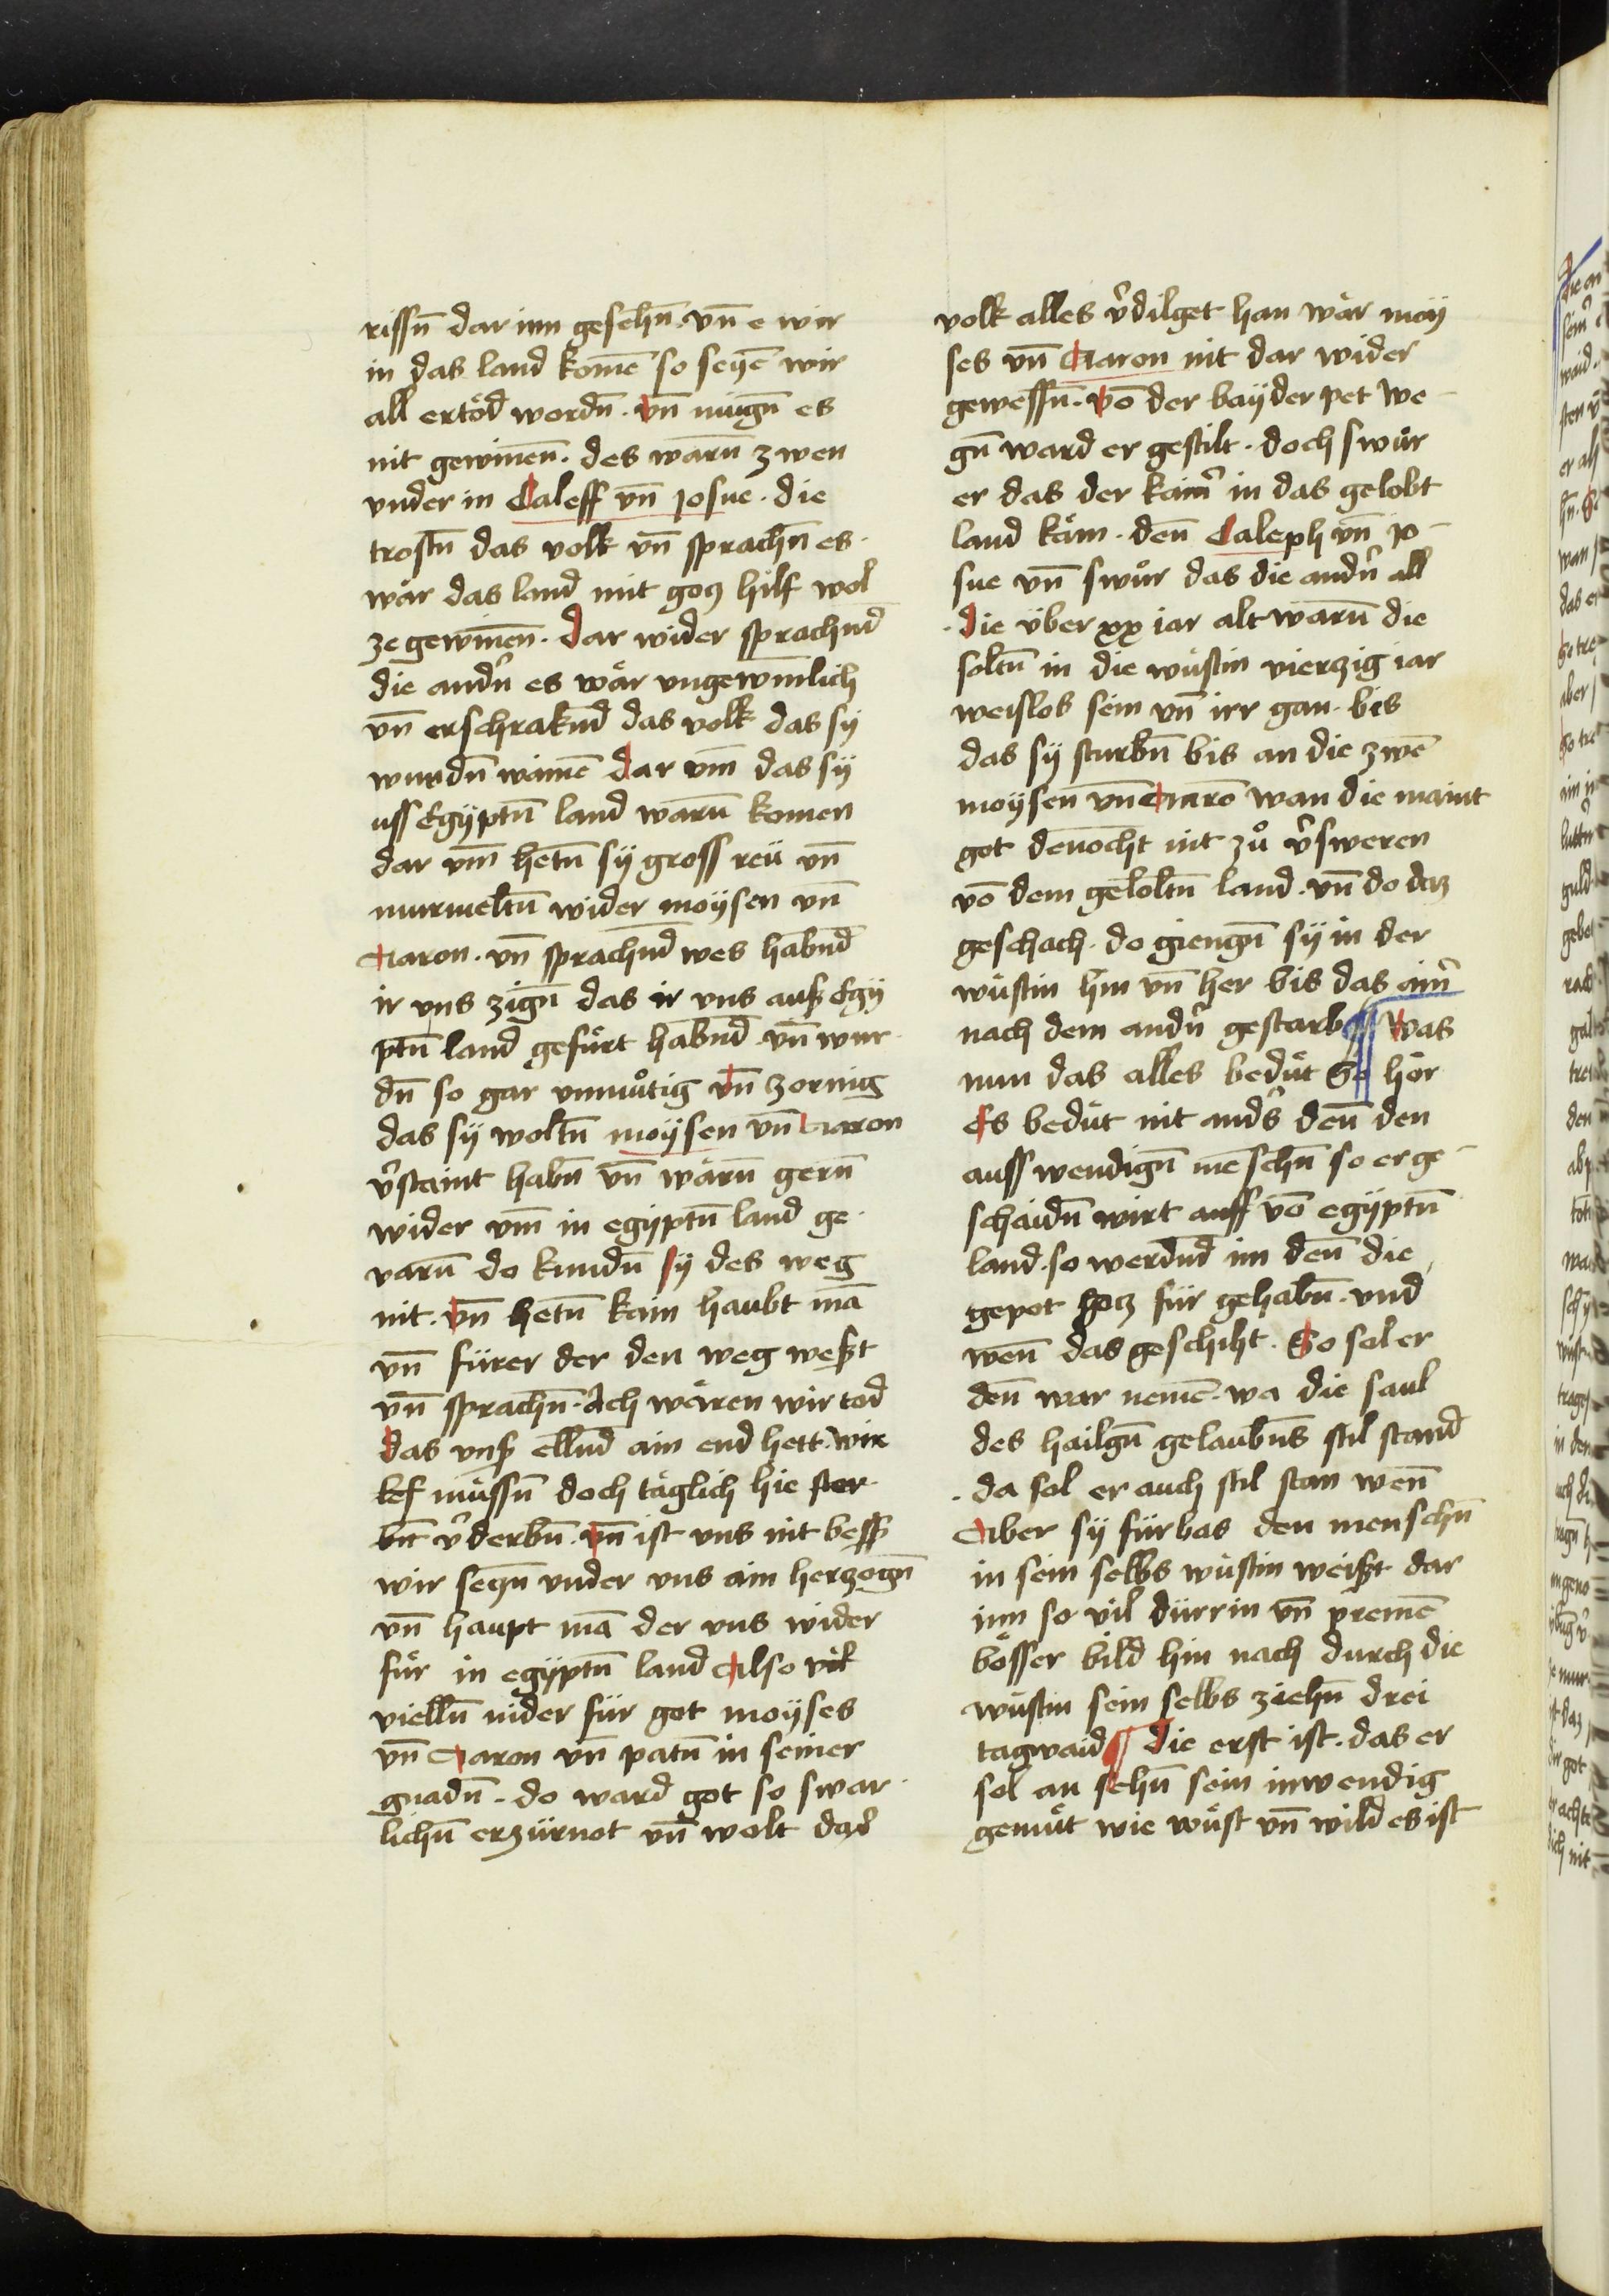 rissn̄ dar inn gesehn̄. vn̄ e wir
in das land komē so seyē wir
all ertöd wordn̄. vn̄ mügn̄ es
nit gewinēn. des warn̄ zwen
vnder in Caleff vn̄ Josue. die
trostn̄ das volk vn̄ sprachn̄ es
wär das land mit gotz hilf wol
ze gewinēn. Dar wider sprachnd
die andn̄ es wär vngewinlich
vn̄ erschraknd das volk das sy
wurdn̄ wainē Dar vm̄ das sy
uss Egyptn̄ land warn̄ komen
dar vm̄ hetn̄ sy gross reü vn̄
murmeltn̄ wider moysen vn̄
Aaron. vn̄ sprachnd wes habnd
ir vns zign̄ das ir vns auß Egy
ptn̄ land gefürt habnd. vn̄ wur
dn̄ so gar vnmůtig vn̄ zornig
das sy woltn̄ moysen vn̄ Aaron
v̄staint habn̄ vn̄ wärn̄ gern̄
wider vm̄ in egyptn̄ land ge
varn̄ do kundn̄ sy des weg
nit. vn̄ hetn̄ kain haubt mā
vn̄ fürer der den weg weßt
vn̄ sprachn̄. Ach wären wir tod
das vnß ellnd ain end hett. wir
müssn̄ doch täglich hie ster
bn̄ v̄derbn̄. vn̄ ist vns nit bess̄
wir seczn̄ vnder vns ain herzogn̄
vn̄ haupt mā der vns wider
für in egyptn̄ land Also vil
vielln̄ nider für got moyses
vn̄ Aaron vn̄ patn̄ in seiner
gnadn̄. do ward got so swar
lichn̄ erzürnot vn̄ wolt daz
volk alles v̄dilget han wär moy
ses vn̄ Aaron nit dar wider
gewessn̄. vō der bayder pet we
gn̄ ward er gestilt. doch swůr
er das der kain̄ in das gelobt
land käm. den̄ Caleph vn̄ Jo
sue vn̄ swůr das die andn̄ all
die über xx iar alt warn̄ die
soltn̄ in die wüstin vierzig iar
weislos sein vn̄ irr gan. bis
das sy sturbn̄ bis an die zwē
moysen vn̄ Aarō wan die maint
got denocht nit zů v̄sweren
vō dem gelobtn̄ land. vn̄ do daz
geschach. do giengn̄ sy in der
wüstin hin vn̄ her bis das ain̄
nach dem andn̄ gestarb Was
nun das alles bedüt So hör
Es bedüt nit and̄s den̄ den
auss wendign̄ mēschn̄ so er ge
schaidn̄ wirt auss vō egyptn̄
land. so werdnd im den̄ die
gepot gotz für gehabn̄. vnd
wen̄ das geschiht. So sol er
den̄ war nemē. wa die saul
des hailgn̄ gelaubn̄s stil stand
. da sol er auch stil stan wen̄
Aber sy fürbas den menschn̄
in sein selbs wüstin weißt dar
inn so vil dürrin vn̄ premē
bösser bild hin nach durch die
wüstin sein selbs ziehn̄ drei
tagwaid Die erst ist. das er
sol an sehn̄ sein inwendig
gemüt wie wüst vn̄ wild es ist